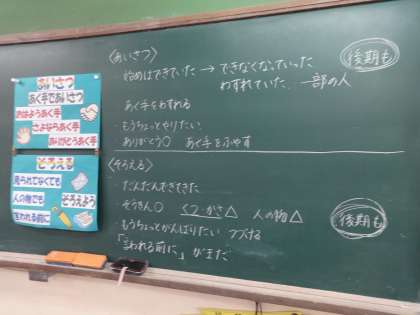 あいさつ
あく手であいさつ
おはようあく手
さよならあく手
ありがとうあく手
そろえる
見られてなくても
人の物でも
そろえよう
言われる前に
〈あいさつ〉
・始めはできていた → できなくなっていった
わすれていた、一部の人
あく手をわすれる
・もうちょっとやりたい
ありがとう○ あく手をふやす
後期も
〈そろえる〉
・だんだんできてきた
・ぞうきん○ くつ・かさ△ 人の物△
・もうちょっとがんばりたい つづける
「言われる前に」がまだ
後期も